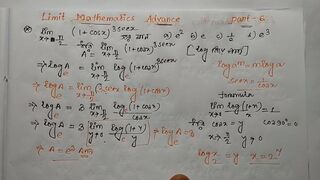 Limit Mathematics Advance Part-6
lim x→π/2 (1+cosx)^3secx a) e² b) e c) 1/e d) e³
A = lim x→π/2 (1+cosx)^3secx
⇒ log_e A = lim x→π/2 log_e (1+cosx)^3secx
log aᵐ = m log a
⇒ log_e A = lim x→π/2 3secx log(1+cosx)
secx = 1/cosx
⇒ log_e A = 3 lim x→π/2 log(1+cosx)/cosx
formula
lim x→0 log(1+x)/x = 1
⇒ log_e A = 3 lim y→0 log(1+y)/y
⇒ log_e A = 3
cosx cos90°=0
x→π/2 y→0
⇒ A = e³ Ans